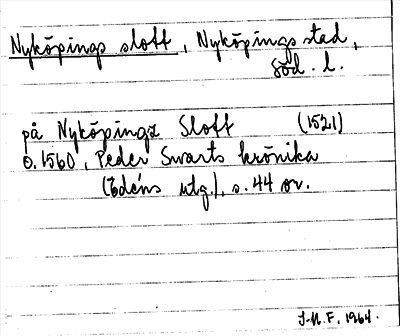 Nyköpings slott, Nyköpings stad,
Söd. l.
på Nyköpingz Slott (1521)
o. 1560, Peder Swarts krönika
(Edéns utg.), s. 44 ov.
J.M.F. 1964.